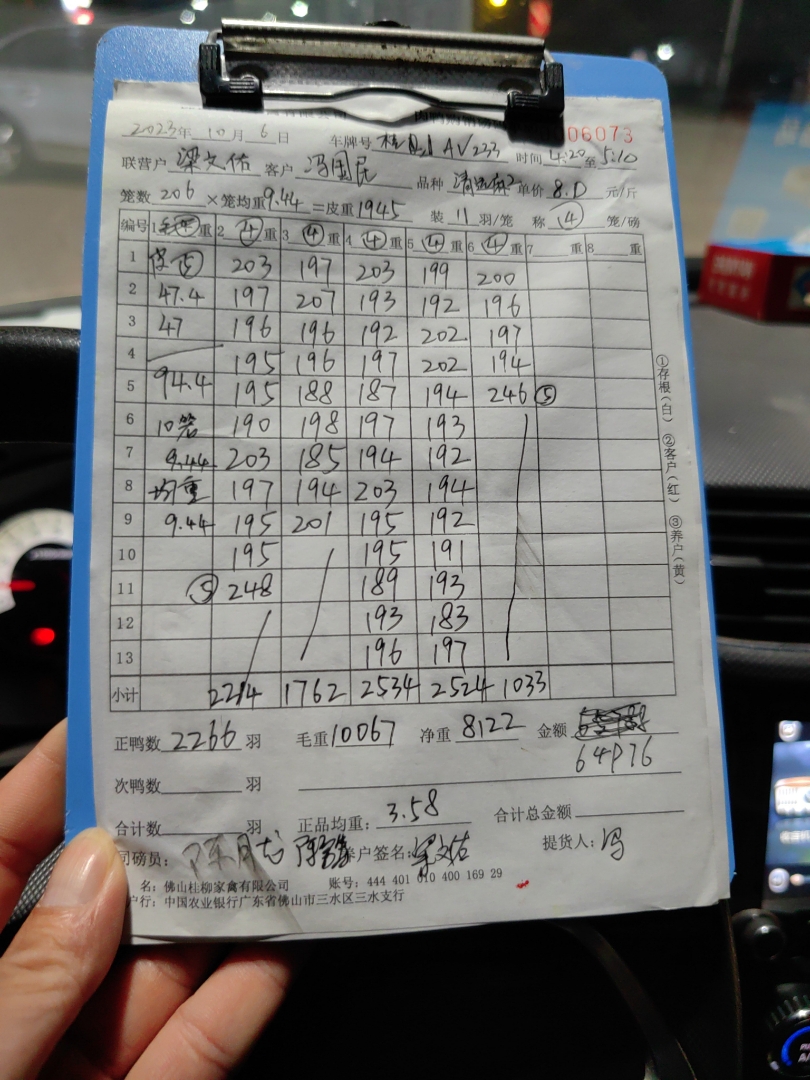 06073
2023年 10月 6日 车牌号 AV233 时间 4:20 至 5:10
联营户 梁文佑 客户 冯国民 品种 单价 8.0 元/斤
笼数 206 ×笼均重 9.44 =皮重 1945 装 11 羽/笼 称 ④ 笼/磅
编号 1 重 2 ④ 重 3 ④ 重 4 ④ 重 5 ④ 重 6 ④ 重 7 重 8 重
1 ⑤ 203 197 203 199 200
2 47.4 197 207 193 192 196
3 47 196 196 192 202 197
4 195 196 197 202 194
5 94.4 195 188 187 194 246 ⑤
6 10笼 190 198 197 193
7 9.44 203 185 194 192
8 均重 197 194 203 194
9 9.44 195 201 195 192
10 195 195 191
11 ⑤ 248 189 193
12 193 183
13 196 197
小计 2214 1762 2534 2524 1033
①存根(白) ②客户(红) ③养户(黄)
正鸭数 2266 羽 毛重 10067 净重 8122 金额
64976
次鸭数 羽
合计数 羽 正品均重: 3.58 合计总金额
司磅员: 养户签名: 梁文佑 提货人: 冯
名: 佛山桂柳家禽有限公司 账号: 444 401 010 400 169 29
户行: 中国农业银行广东省佛山市三水区三水支行